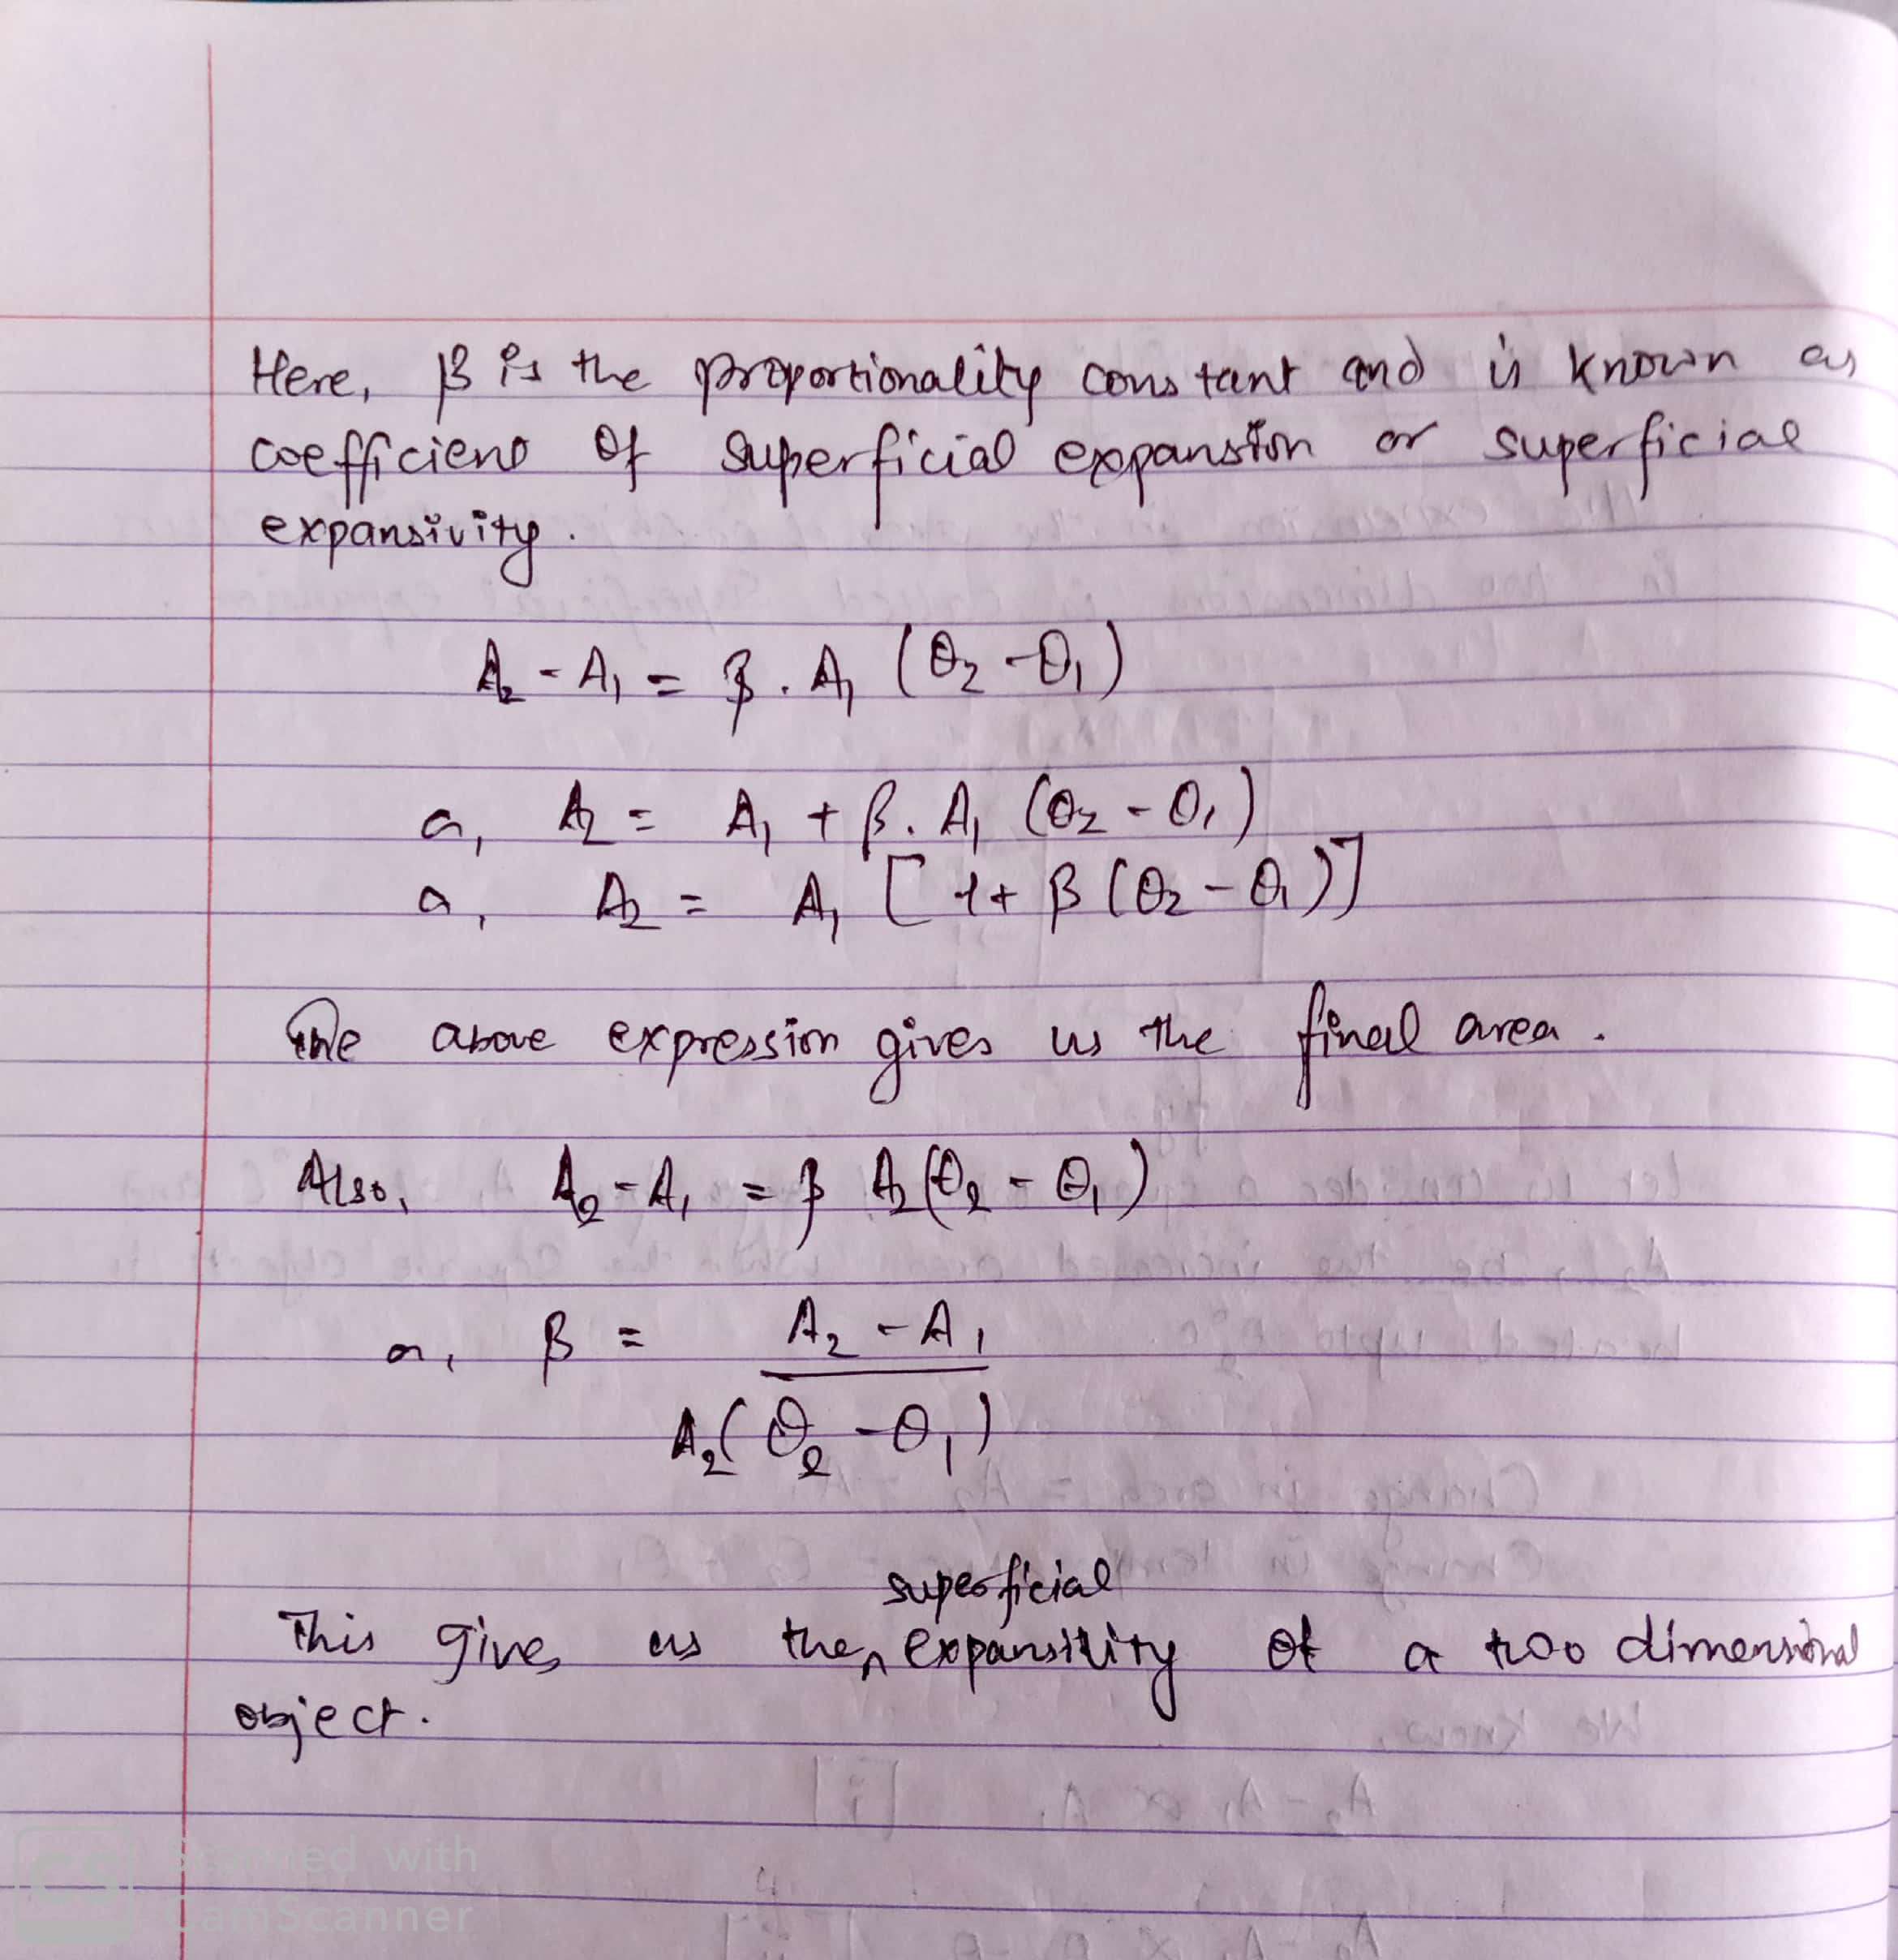 Here, β is the proportionality constant and is known as
coefficient of superficial expansion or superficial
expansivity.
A₂ - A₁ = β . A₁ (θ₂ - θ₁)
or, A₂ = A₁ + β. A₁ (θ₂ - θ₁)
or, A₂ = A₁ [1+ β (θ₂ - θ₁)]
The above expression gives us the final area.
Also, A₂ - A₁ = β A₂(θ₂ - θ₁)
or, β = A₂ - A₁
A₂(θ₂ - θ₁)
superficial
This gives us the ^ expansivity of a two dimensional
object.
CS Scanned with
CamScanner